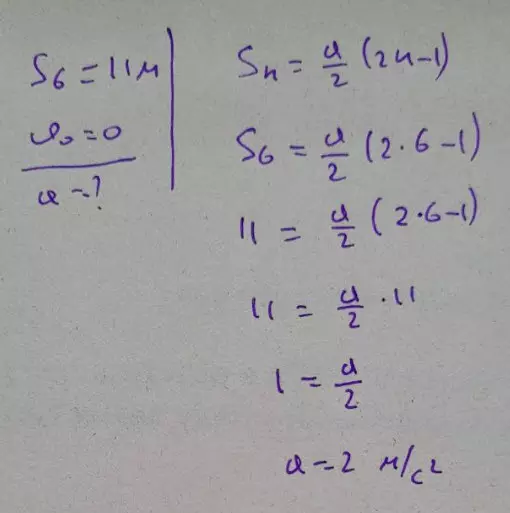 S₆ = 11 м
υ₀ = 0
a = ?
Sₙ = a/2 (2n-1)
S₆ = a/2 (2·6-1)
11 = a/2 (2·6-1)
11 = a/2 · 11
1 = a/2
a = 2 м/с²